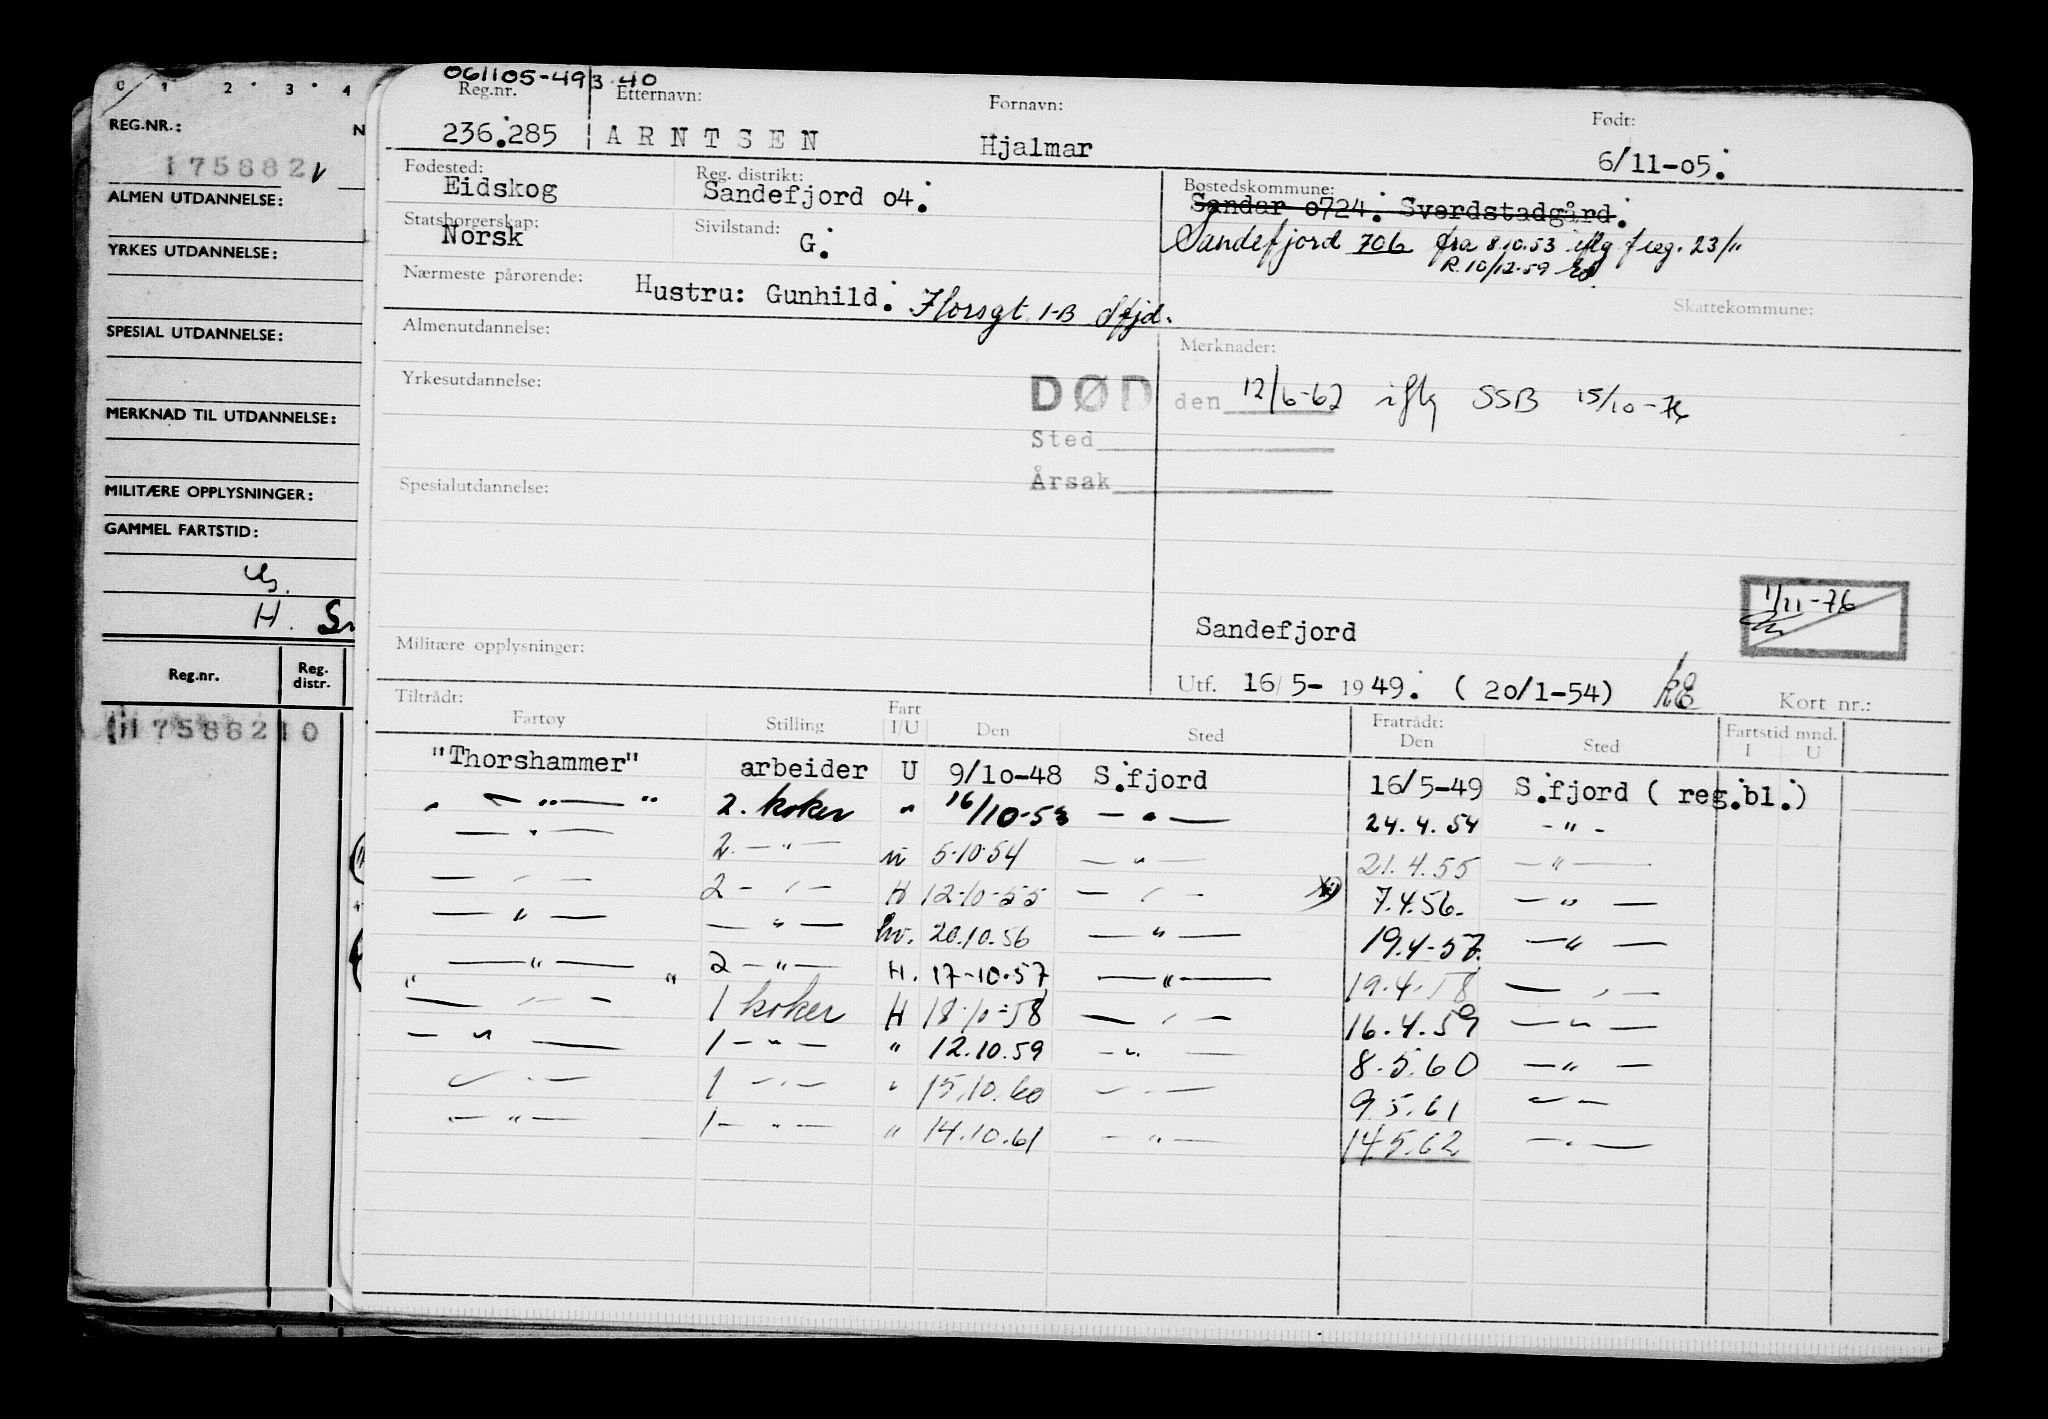 0 1 2 3 4
REG.NR.:
175882
ALMEN UTDANNELSE:
YRKES UTDANNELSE:
SPESIAL UTDANNELSE:
MERKNAD TIL UTDANNELSE:
MILITÆRE OPPLYSNINGER:
GAMMEL FARTSTID:
H.
Reg.nr. Reg. distr.
061105-493 40
Reg.nr. Etternavn: Fornavn: Født:
236.285 ARNTSEN Hjalmar 6/11-05.
Fødested: Reg. distrikt: Bostedskommune:
Eidskog Sandefjord 04. Sandar 0724. Sverdstadgård.
Statsborgerskap: Sivilstand:
Norsk G. Sandefjord 706 fra 8.10.53 iflg freg. 23/11
R.10/12-59
Nærmeste pårørende: Hustru: Gunhild. Florsgt 1-B Sfjd. Skattekommune:
Almenutdannelse: Merknader:
Yrkesutdannelse: DØD den 12/6-62 iflg SSB 15/10-76
Sted
Årsak
Spesialutdannelse:
1/11-76
Sandefjord
Militære opplysninger:
Utf. 16/5-1949. (20/1-54) Kort nr.:
Tiltrådt: Fratrådt:
Fartøy Stilling Fart I/U Den Sted Den Sted Fartstid mnd. I U
"Thorshammer" arbeider U 9/10-48 S.fjord 16/5-49 S.fjord (reg.bl.)
" — " — " 2. koker " 16/10-53 — " — 24.4.54 - " -
— " — 2. — " — u 5.10.54 — " — 21.4.55 — " —
— " — 2 — " — H 12-10-55 — " — 7.4.56. — " —
— " — — " — hv. 20.10.56 — " — 19.4-57. — " —
— " — 2 — " — H. 17-10-57 — " — 19.4.58 — " —
— " — 1 koker H 18.10-58 — " — 16.4.59 — " —
— " — 1 — " — " 12.10.59 — " — 8.5.60 — " —
— " — 1 — " — " 15.10.60 — " — 9.5.61 — " —
— " — 1 — " — " 14.10.61 — " — 14.5.62 — " —